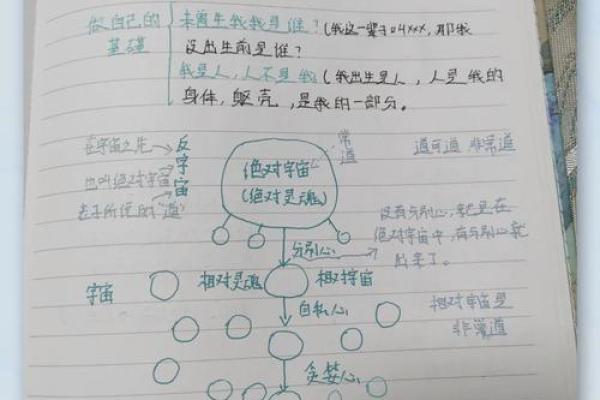 做自己的
基礎
未曾生我我是谁？（我这一辈子叫xxx，那我
没出生前是谁？
我是人，人不是我（我出生是人，人是我的
身体，躯壳，是我的一部分。
在宇宙之先
也叫绝对宇宙
老子所说的"道"
反宇宙
绝对宇宙
（绝对灵魂）
常道
道可道 非常道
没有分别心，就是在
绝对宇宙中，有分别心就
出来了。
分别心
宇宙
相对灵魂
相对宇宙
自私心
相对宇宙是
非常道
贪婪心